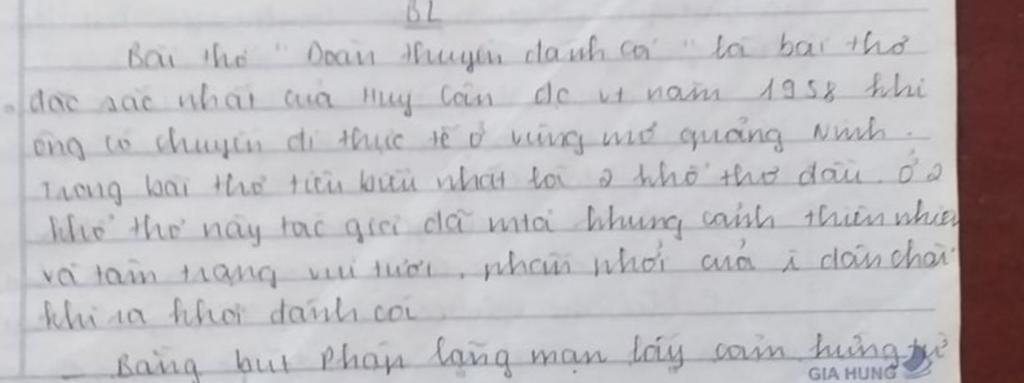 BL
Bài thơ "Đoàn thuyền đánh cá" là bài thơ
đặc sắc nhất của Huy Cận đc vt năm 1958 khi
ông có chuyến đi thực tế ở vùng mỏ quảng Ninh.
Trong bài thơ tiêu biểu nhất là 2 khổ thơ đầu. Ở 2
khổ thơ này tác giả đã mtả khung cảnh thiên nhiên
và tâm trạng vui tươi, phấn khởi của dân chài
khi ra khơi đánh cá
- Bằng bút Pháp lãng mạn lấy cảm hứng từ
GIA HUNG